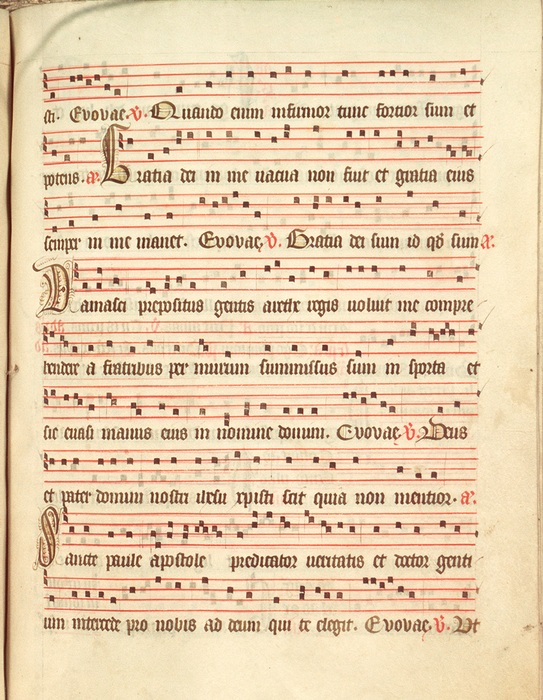 sti. Evovae. v. Quando enim infirmor tunc fortior sum et
potens. a. Gratia dei in me uacua non fuit et gratia eius
semper in me manet. Evovae. v. Gratia dei sum id qd sum a.
Damasci prepositus gentis arethe regis uoluit me compre
hendere a fratribus per murum summissus sum in sporta et
sic euasi manus eius in nomine domini. Evovae. v. Deus
et pater domini nostri ihesu xpisti scit quia non mentior. a.
Sancte paule apostole predicator ueritatis et doctor genti
um intercede pro nobis ad deum qui te elegit. Evovae. v. Vt